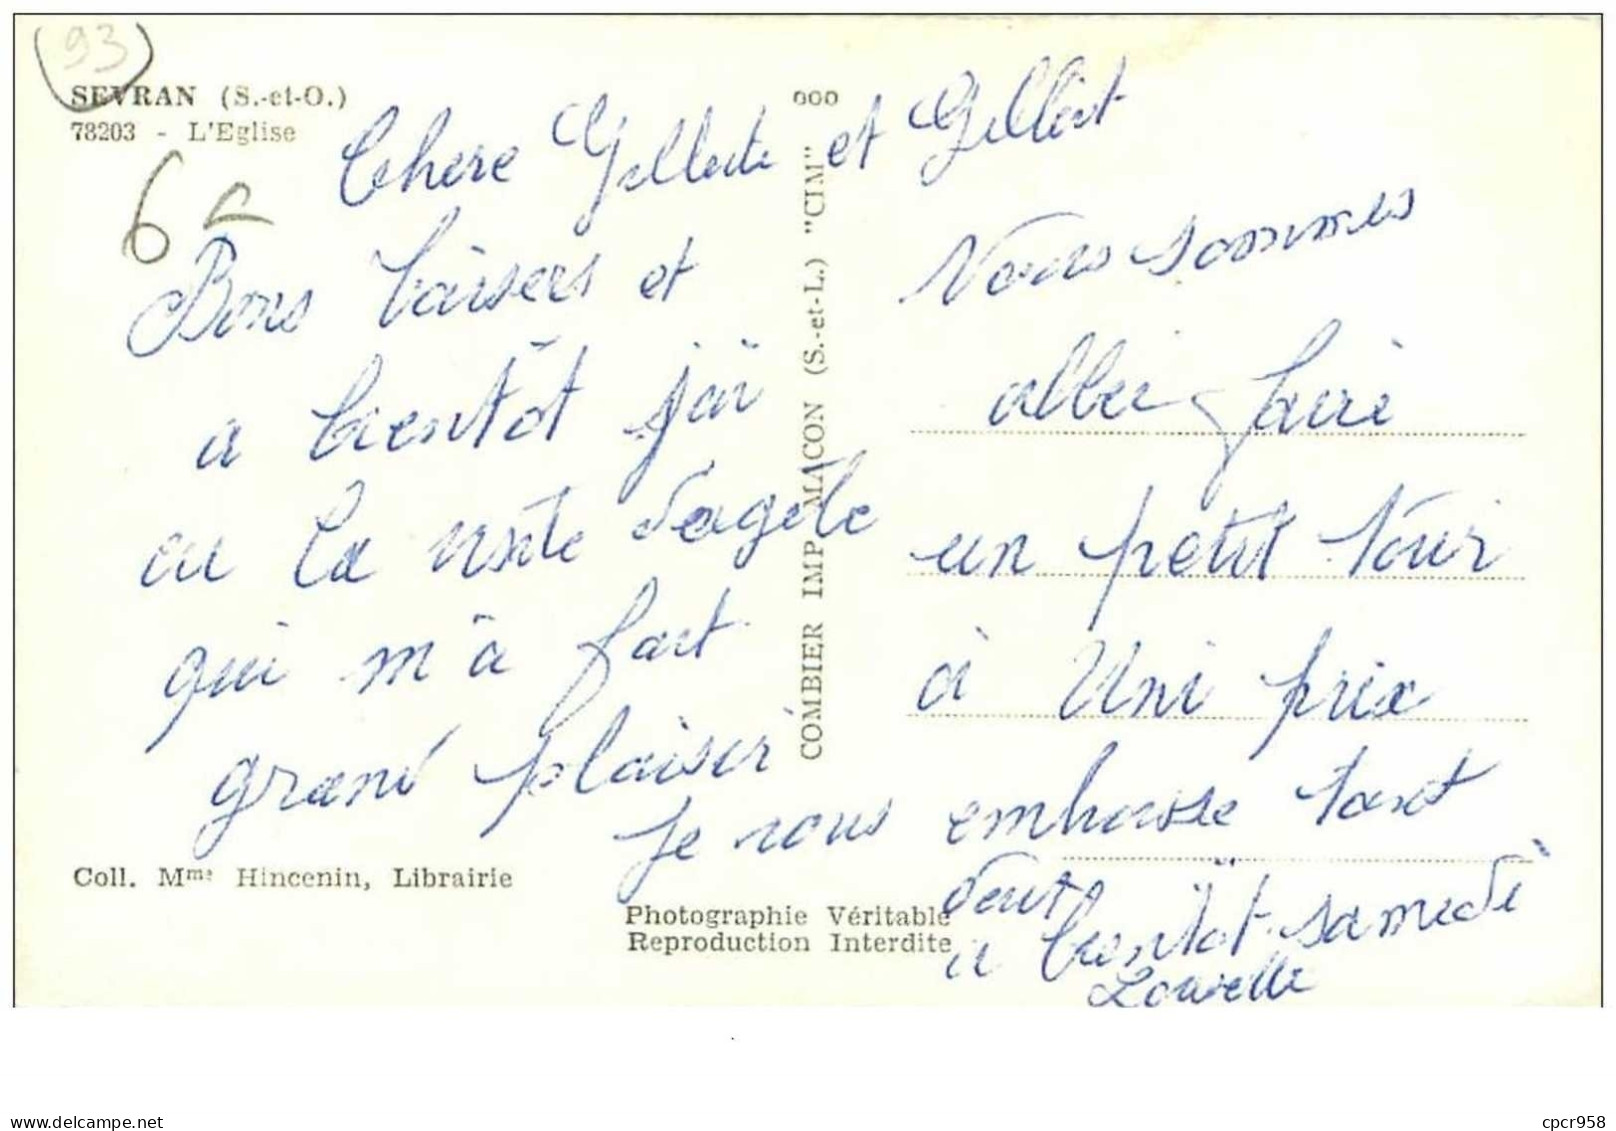 (93)
SEVRAN (S.-et-O.)
78203 - L'Eglise
6
Chere Gilberte et Gilbert
Bons baisers et
a bientôt j'ai
eu la visite d'agete
qui m'à fait
grand plaisir
Nous sommes
aller faire
un petit tour
à Uni prix
je vous embrasse tout
deux
a bientôt samedi
COMBIER IMP MACON (S.-et-L.) "CIM"
Coll. Mme Hincenin, Librairie
Photographie Véritable
Reproduction Interdite
www.delcampe.net
cpcr958